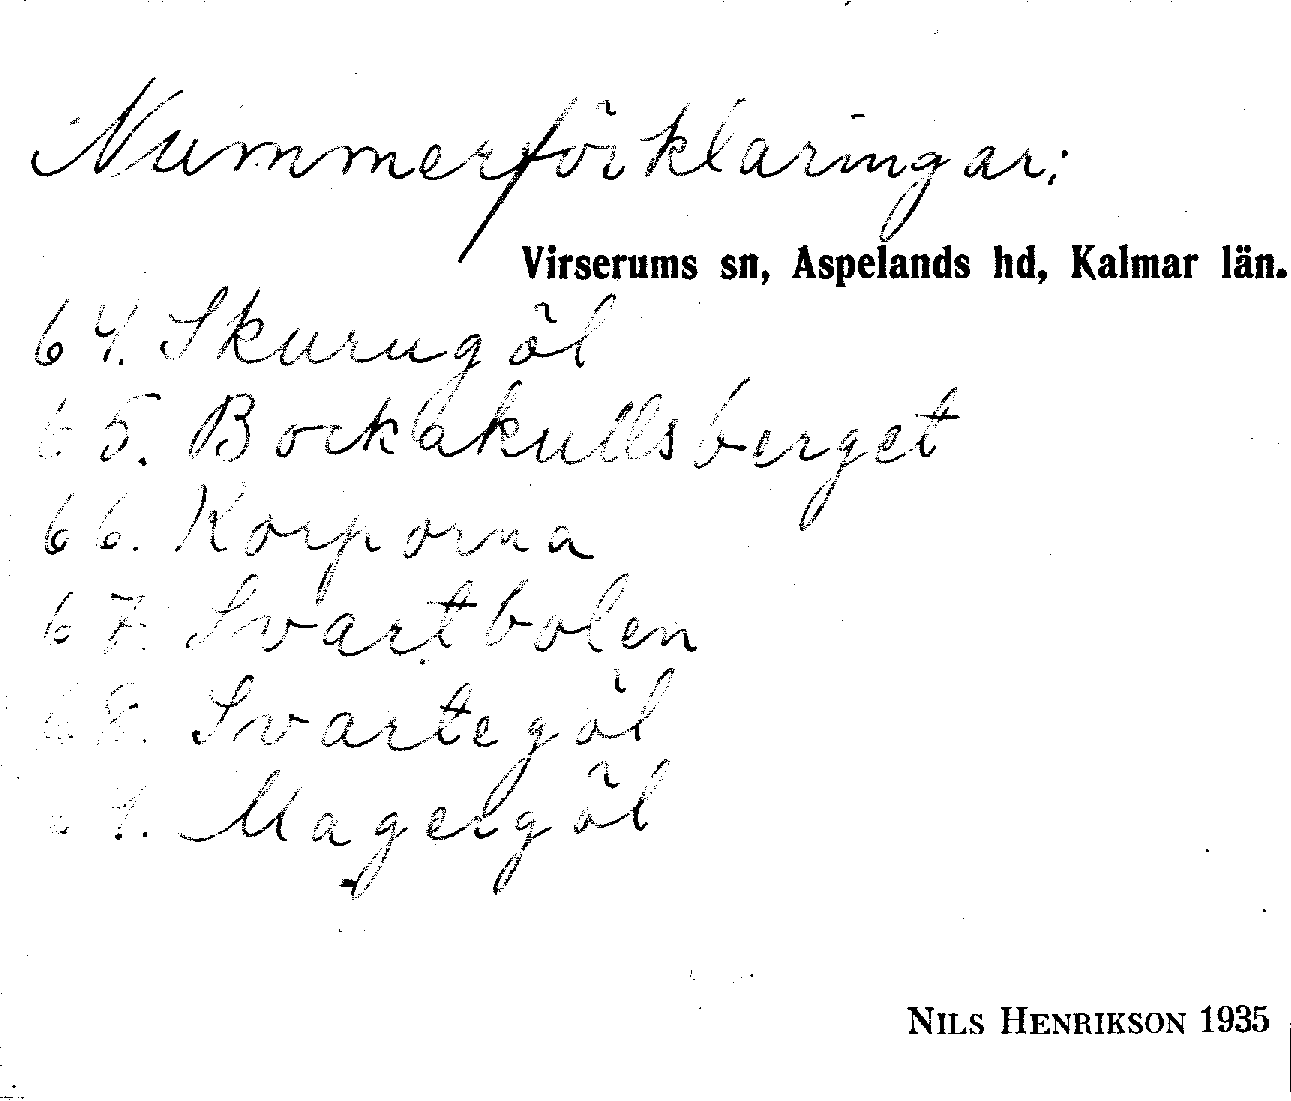 Nummerförklaringar;
Virserums sn, Aspelands hd, Kalmar län.
64. Skurugöl
65. Bockakullsberget
66. Korporna
67. Svartbolen
68. Svartegöl
Magergöl
NILS HENRIKSON 1935